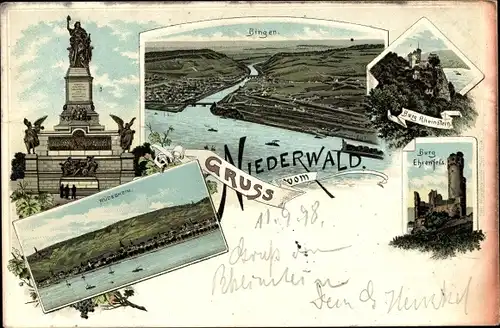 Bingen.
Burg Rheinstein.
Burg
Ehrenfels.
GRUSS vom NIEDERWALD.
RÜDESHEIM.
11.9.98.
Gruß von
Rheinstein
Dein